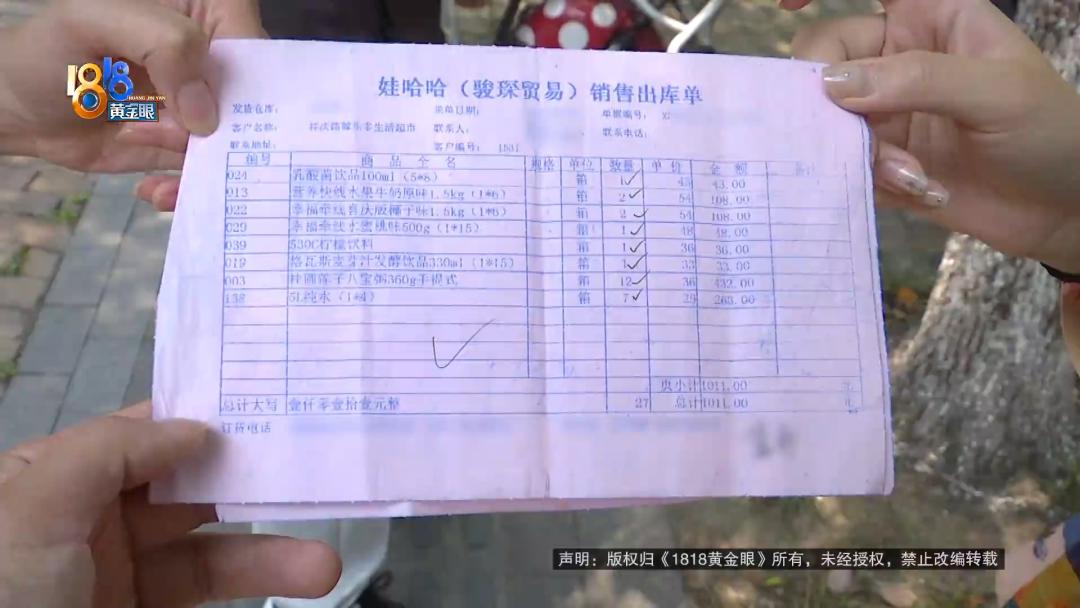 1818
HUANG JIN YAN
黄金眼
娃哈哈（骏琛贸易）销售出库单
发货仓库： 派单日期： 单据编号：
客户名称： 生活超市 联系人： 联系电话：
联系地址： 客户编号：
编号 商品全名 规格 单位 数量 单价 金额 备注
024 乳酸菌饮品100ml（5*8） 箱 1 43 43.00
013 营养快线水果牛奶原味1.5kg（1*6） 箱 2 54 108.00
022 幸福牵线喜庆版椰子味1.5kg（1*6） 箱 2 54 108.00
029 幸福牵线水蜜桃味500g（1*15） 箱 1 48 48.00
039 530C柠檬饮料 箱 1 36 36.00
019 格瓦斯麦芽汁发酵饮品330ml（1*15） 箱 1 33 33.00
003 桂圆莲子八宝粥360g手提式 箱 12 36 432.00
138 5L纯水（1*4） 箱 7 29 203.00
页小计 1011.00 元
总计大写 壹仟零壹拾壹元整 27 总计 1011.00 元
订货电话
声明：版权归《1818黄金眼》所有，未经授权，禁止改编转载